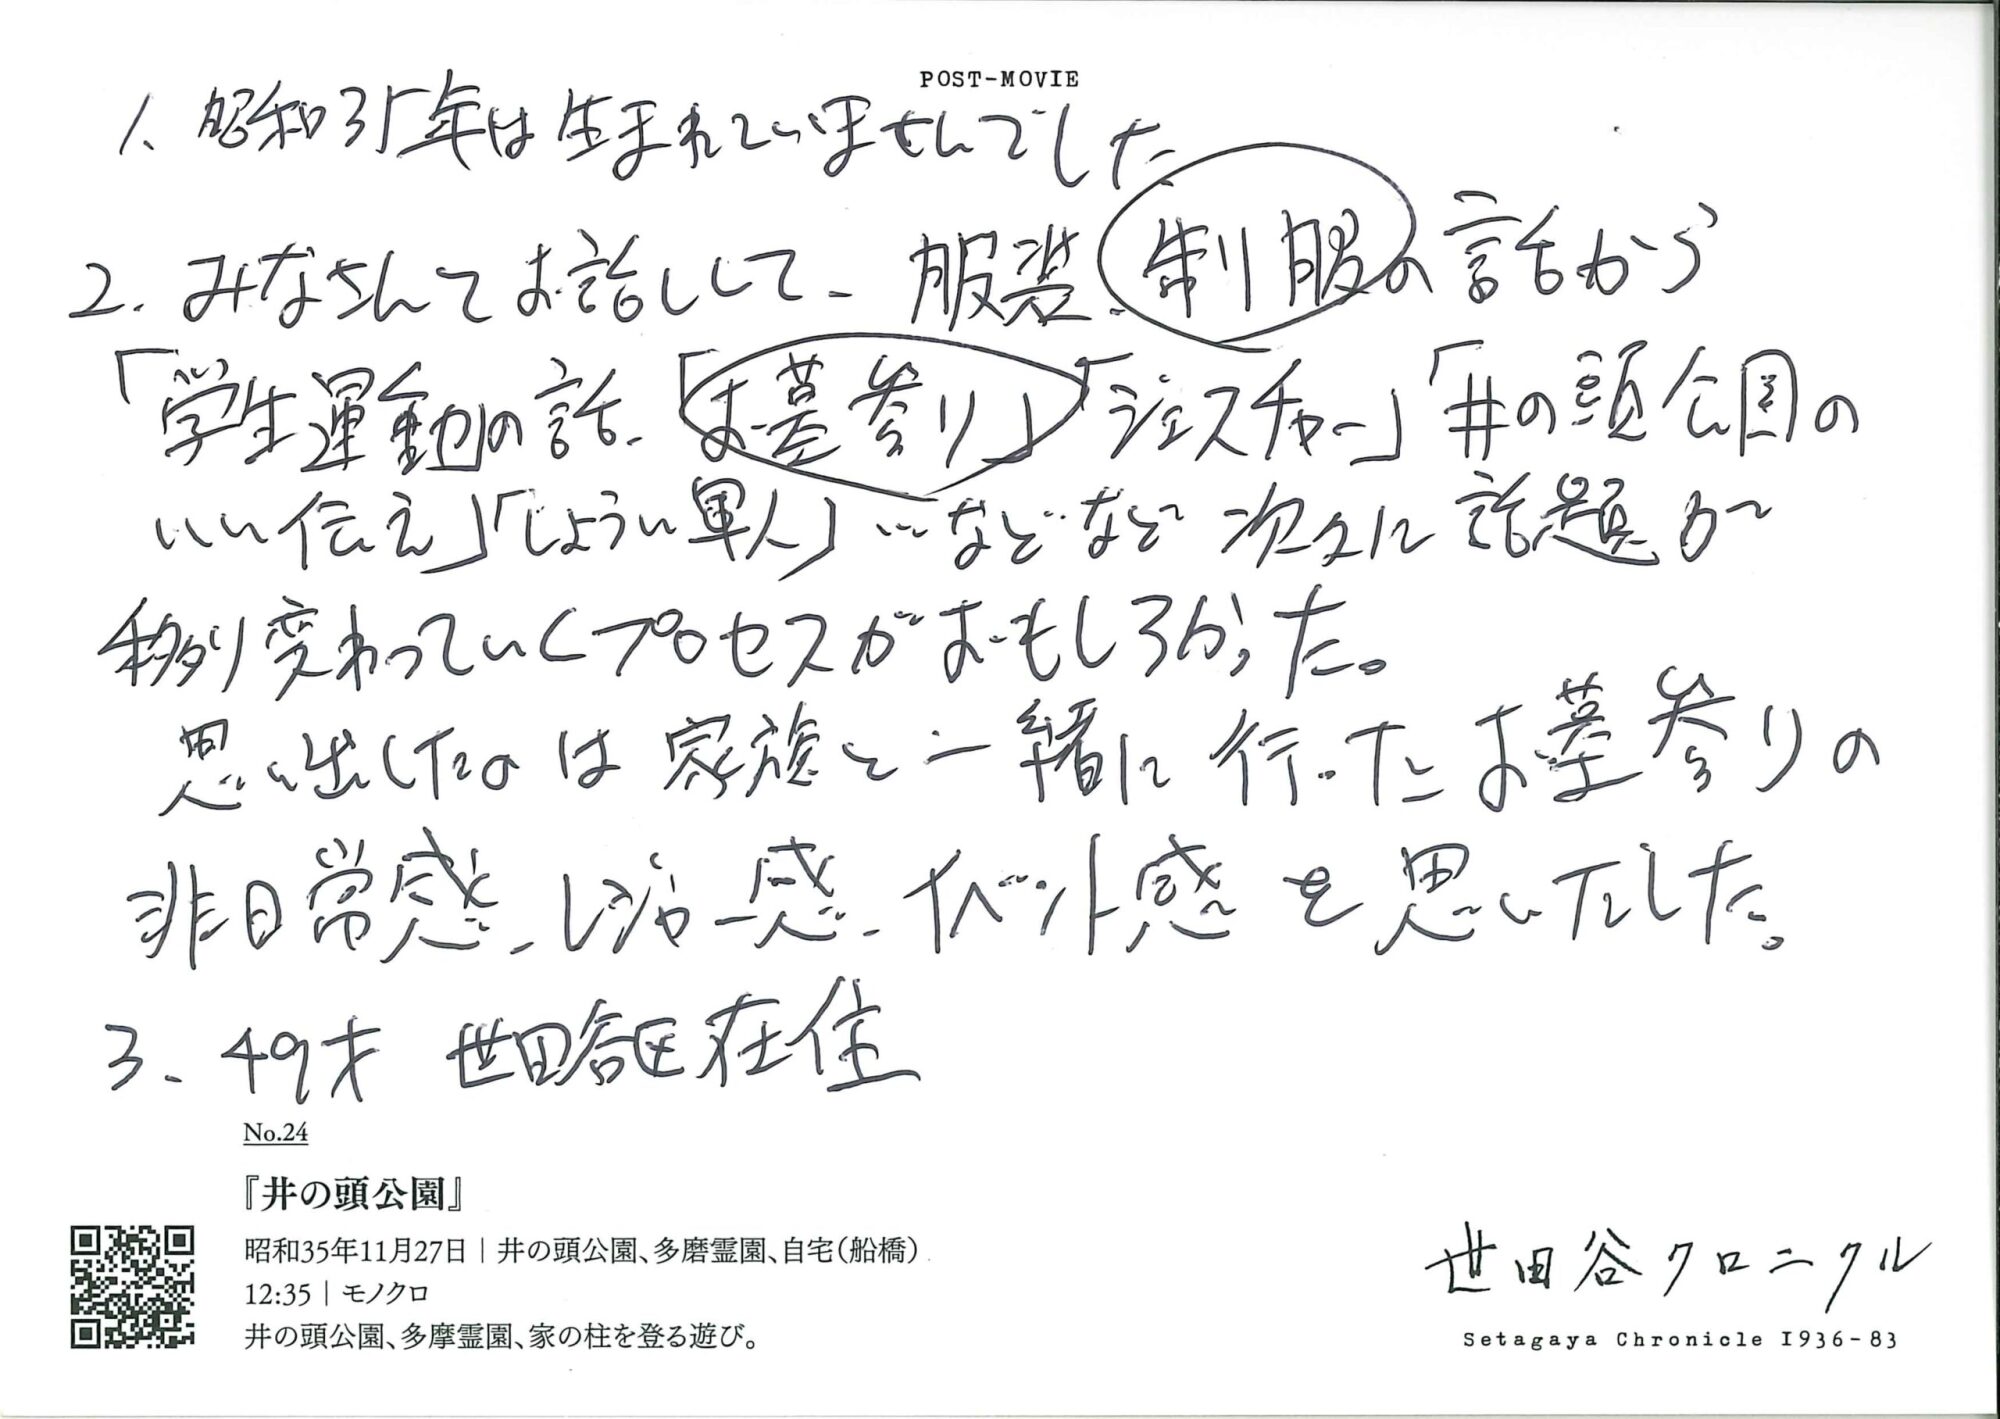 POST-MOVIE
1、昭和35年は生まれていませんでした
2. みなさんてお話しして、服装、制服の話から
「学生運動の話、「お墓参り」「ジェスチャー」「井の頭公園の
いい伝え」「しょうい軍人」…などなど次々に話題が
移り変わっていくプロセスがおもしろかった。
思い出したのは家族と一緒に行ったお墓参りの
非日常感、レジャー感、イベント感を思いだした。
3、49才 世田谷区在住
No.24
『井の頭公園』
昭和35年11月27日｜井の頭公園、多磨霊園、自宅(船橋)
12:35｜モノクロ
井の頭公園、多摩霊園、家の柱を登る遊び。
世田谷クロニクル
Setagaya Chronicle 1936-83